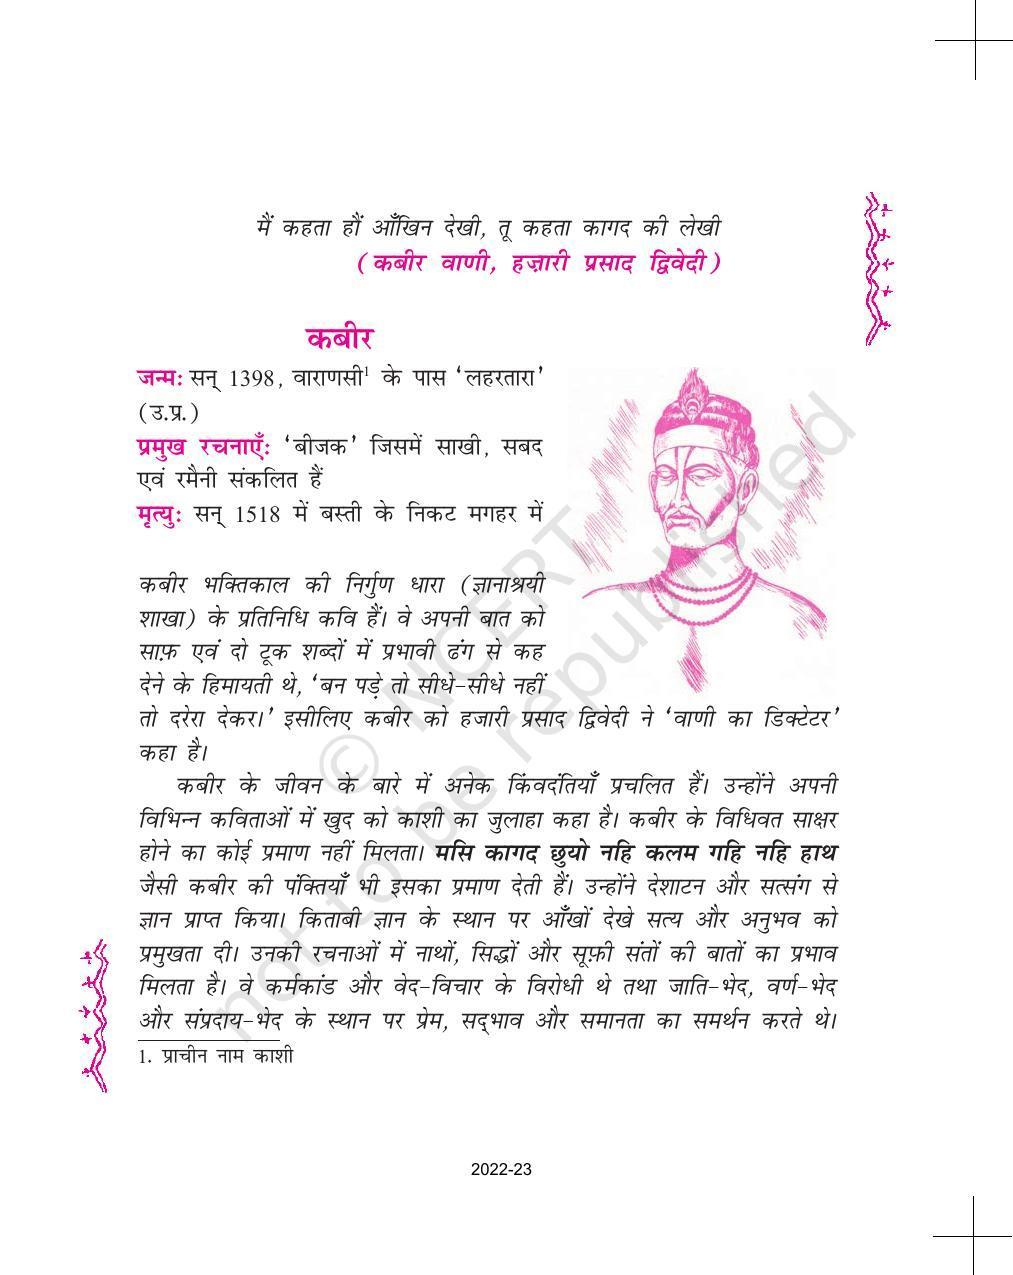 मैं कहता हौं आँखिन देखी, तू कहता कागद की लेखी
(कबीर वाणी, हज़ारी प्रसाद द्विवेदी)
कबीर
जन्मः सन् 1398, वाराणसी¹ के पास ‘लहरतारा’
(उ.प्र.)
प्रमुख रचनाएँः ‘बीजक’ जिसमें साखी, सबद
एवं रमैनी संकलित हैं
मृत्युः सन् 1518 में बस्ती के निकट मगहर में
कबीर भक्तिकाल की निर्गुण धारा (ज्ञानाश्रयी
शाखा) के प्रतिनिधि कवि हैं। वे अपनी बात को
साफ़ एवं दो टूक शब्दों में प्रभावी ढंग से कह
देने के हिमायती थे, ‘बन पड़े तो सीधे-सीधे नहीं
तो दरेरा देकर।’ इसीलिए कबीर को हजारी प्रसाद द्विवेदी ने ‘वाणी का डिक्टेटर’
कहा है।
कबीर के जीवन के बारे में अनेक किंवदंतियाँ प्रचलित हैं। उन्होंने अपनी
विभिन्न कविताओं में खुद को काशी का जुलाहा कहा है। कबीर के विधिवत साक्षर
होने का कोई प्रमाण नहीं मिलता। मसि कागद छुयो नहि कलम गहि नहि हाथ
जैसी कबीर की पंक्तियाँ भी इसका प्रमाण देती हैं। उन्होंने देशाटन और सत्संग से
ज्ञान प्राप्त किया। किताबी ज्ञान के स्थान पर आँखों देखे सत्य और अनुभव को
प्रमुखता दी। उनकी रचनाओं में नाथों, सिद्धों और सूफ़ी संतों की बातों का प्रभाव
मिलता है। वे कर्मकांड और वेद-विचार के विरोधी थे तथा जाति-भेद, वर्ण-भेद
और संप्रदाय-भेद के स्थान पर प्रेम, सद्भाव और समानता का समर्थन करते थे।
1. प्राचीन नाम काशी
© NCERT
not to be republished
2022-23